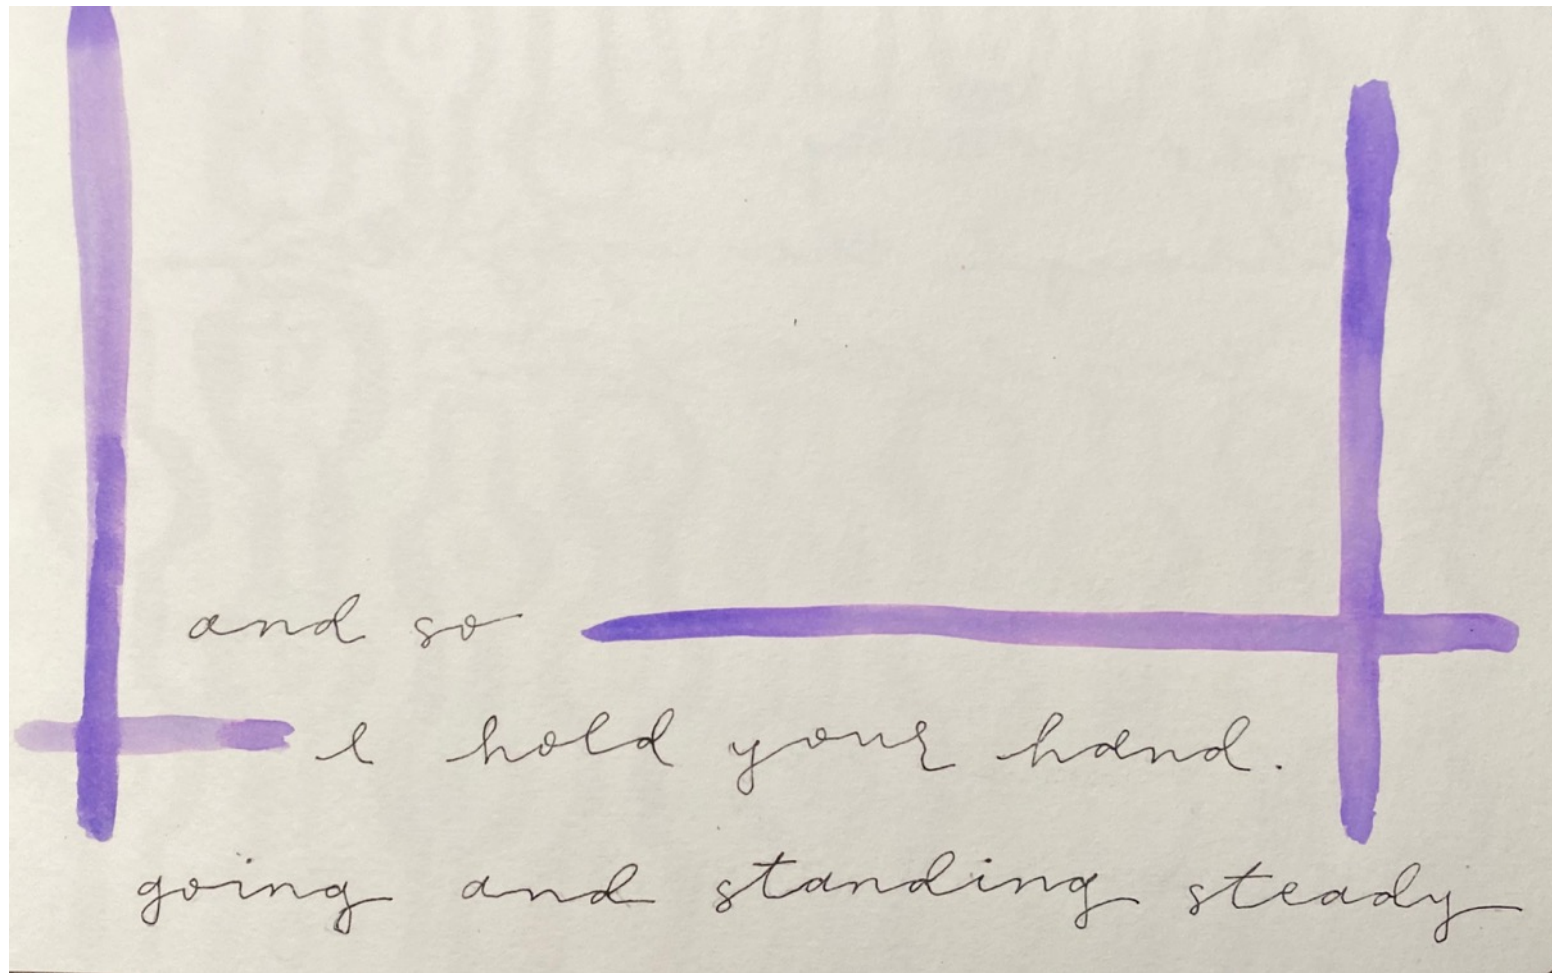 and so
I hold your hand.
going and standing steady